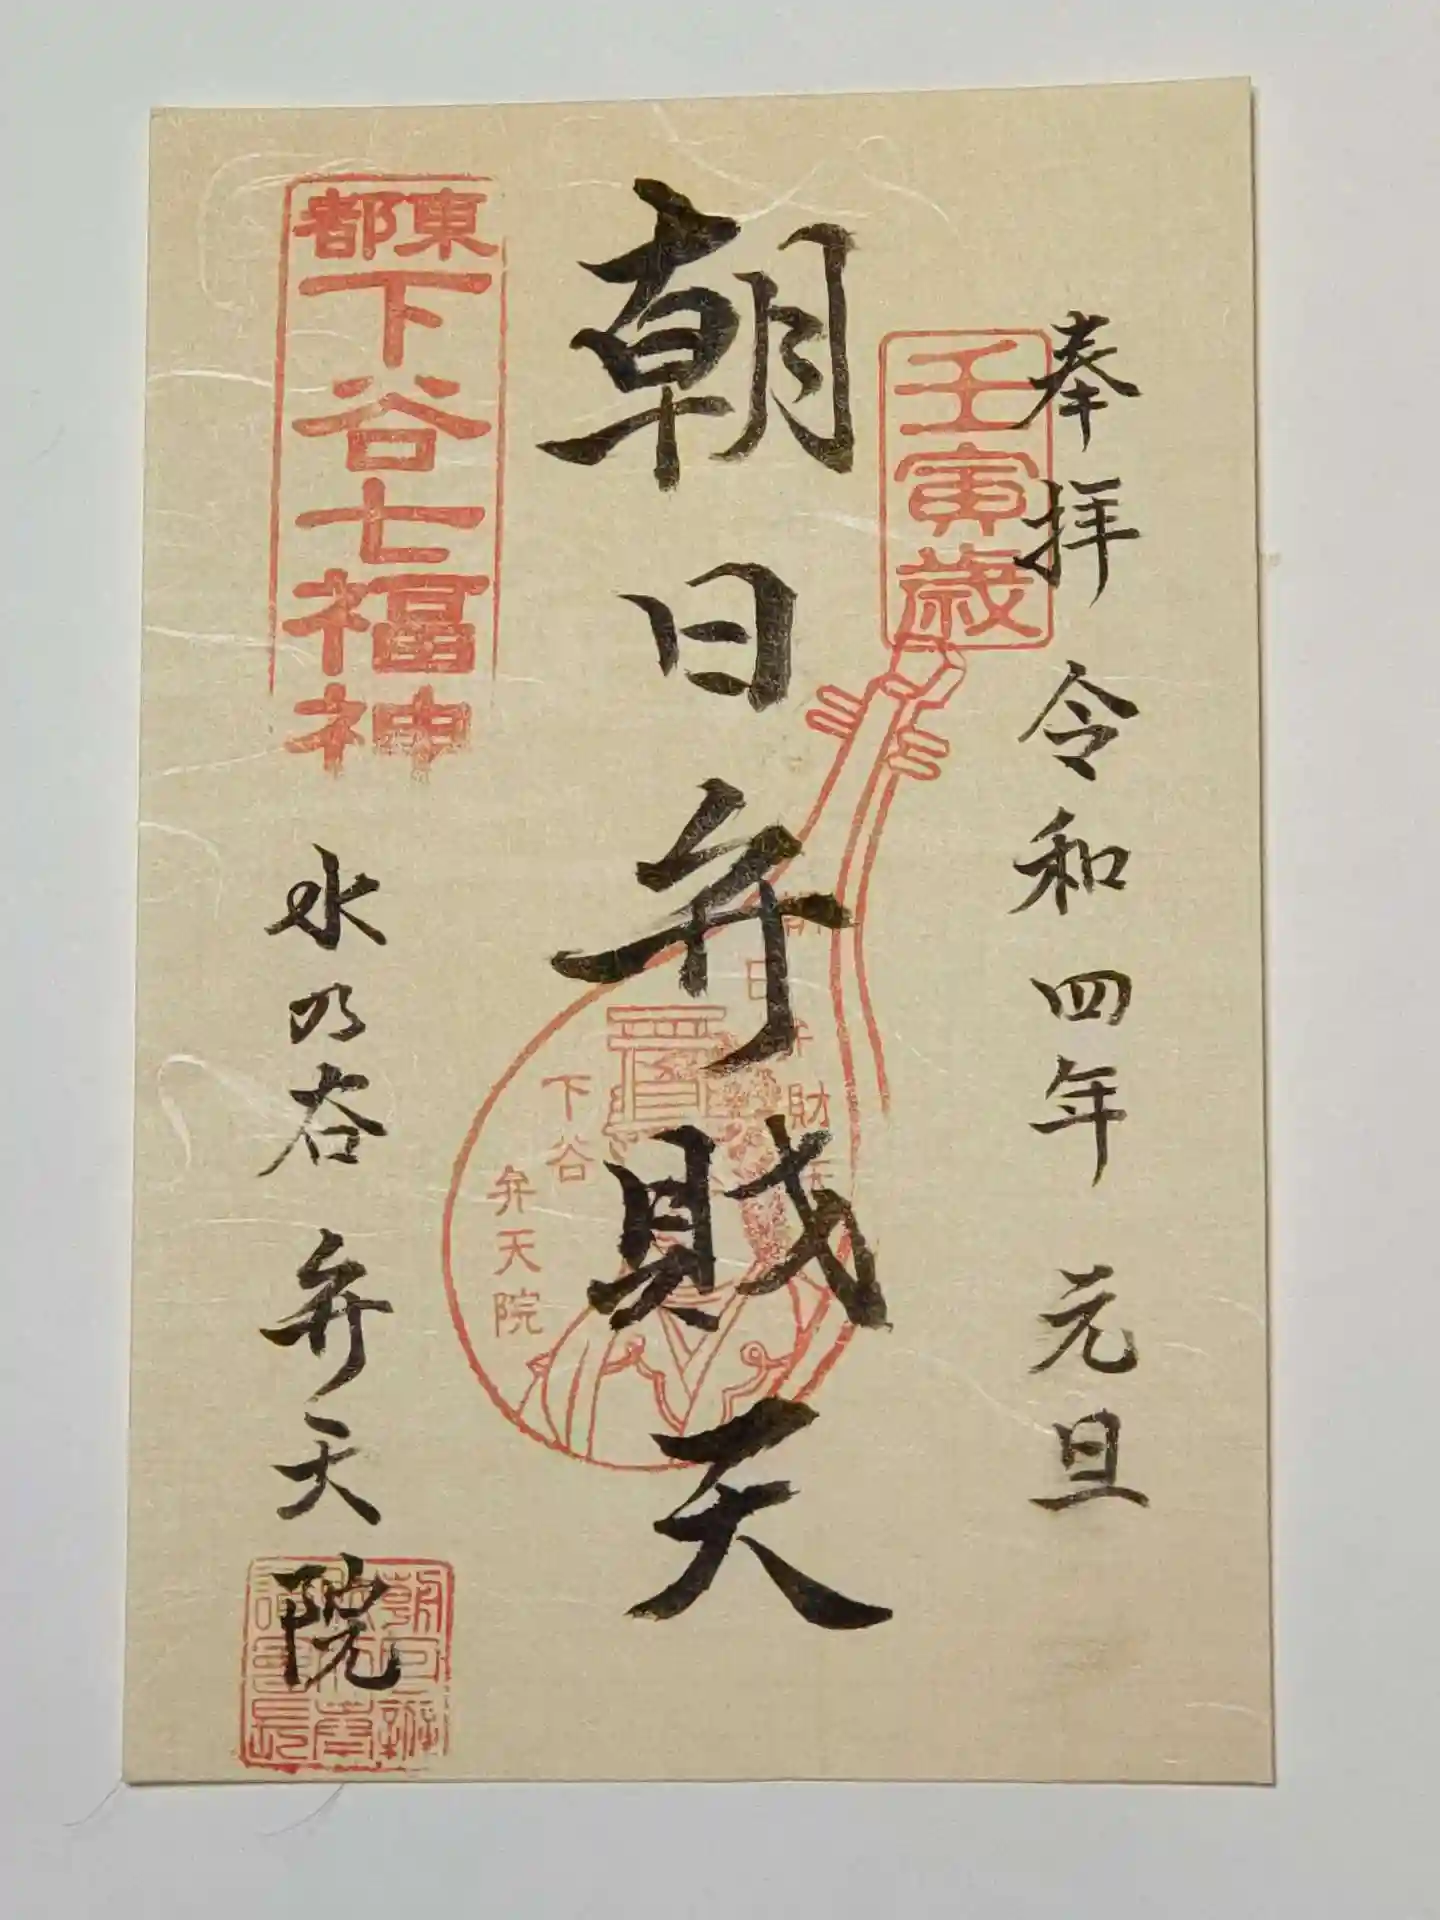 奉拝 令和四年 元旦
壬寅歳
朝日弁財天
弁財
下谷
弁天院
東都
下谷七福神
水の谷 弁天院